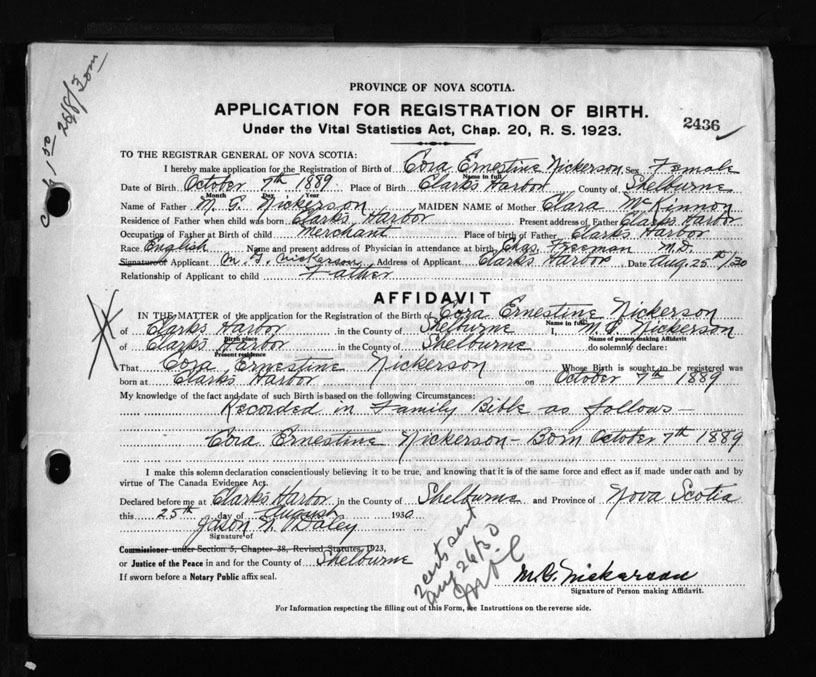 PROVINCE OF NOVA SCOTIA.
APPLICATION FOR REGISTRATION OF BIRTH.
Under the Vital Statistics Act, Chap. 20, R. S. 1923.
2436
TO THE REGISTRAR GENERAL OF NOVA SCOTIA:
I hereby make application for the Registration of Birth of Cora Ernestine Nickerson Sex Female
Name in full
Date of Birth October 7th 1889 Place of Birth Clarks Harbor County of Shelburne
Month Day Year
Name of Father M. G. Nickerson MAIDEN NAME of Mother Clara McKinnon
Residence of Father when child was born Clarks Harbor Present address of Father Clarks Harbor
Occupation of Father at Birth of child Merchant Place of birth of Father Clarks Harbor
Race English Name and present address of Physician in attendance at birth Chas. Freeman M.D.
Signature of Applicant M. G. Nickerson Address of Applicant Clarks Harbor Date Aug. 25th/30
Relationship of Applicant to child Father
AFFIDAVIT
IN THE MATTER of the application for the Registration of the Birth of Cora Ernestine Nickerson
Name in full
of Clarks Harbor in the County of Shelburne I, M. G. Nickerson
Birth place Name of person making Affidavit
of Clarks Harbor in the County of Shelburne do solemnly declare:
Present residence
That Cora Ernestine Nickerson Whose Birth is sought to be registered was
born at Clarks Harbor on October 7th 1889
My knowledge of the fact and date of such Birth is based on the following Circumstances:
Recorded in Family Bible as follows—
Cora Ernestine Nickerson — Born October 7th 1889
I make this solemn declaration conscientiously believing it to be true, and knowing that it is of the same force and effect as if made under oath and by
virtue of The Canada Evidence Act.
Declared before me at Clarks Harbor in the County of Shelburne and Province of Nova Scotia
this 25th day of August 1930
Signature of
Commissioner under Section 5, Chapter 38, Revised Statutes, 1923,
or Justice of the Peace in and for the County of Shelburne
If sworn before a Notary Public affix seal.
cert sent
Aug 26/30
M. G. Nickerson
Signature of Person making Affidavit.
For Information respecting the filling out of this Form, see Instructions on the reverse side.